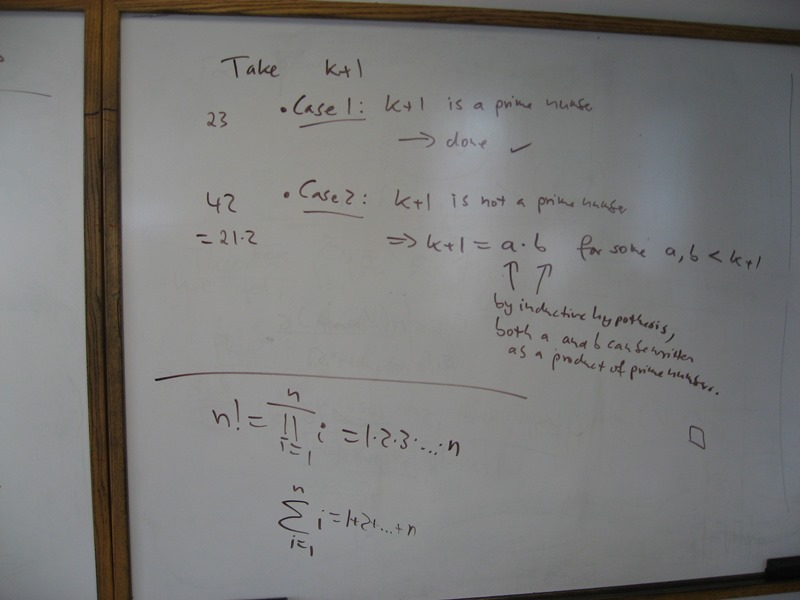 Take k+1
23 • Case 1: k+1 is a prime number
→ done ✓
42 • Case 2: k+1 is not a prime number
= 21·2 ⇒ k+1 = a·b for some a, b < k+1
↑ ↑
by inductive hypothesis,
both a and b can be written
as a product of prime numbers.
□
n! = ∏_{i=1}^{n} i = 1·2·3·...·n
∑_{i=1}^{n} i = 1+2+...+n